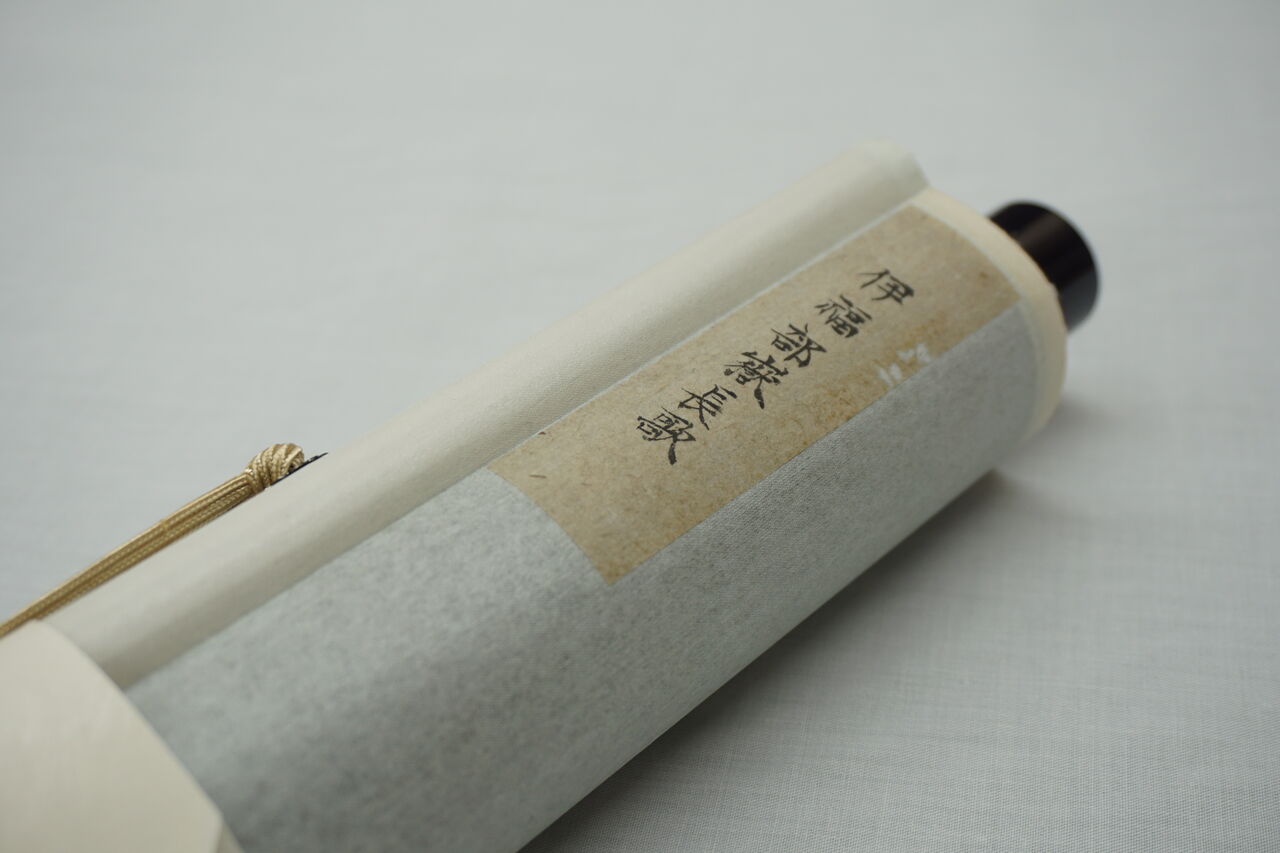 伊福部嶽長歌